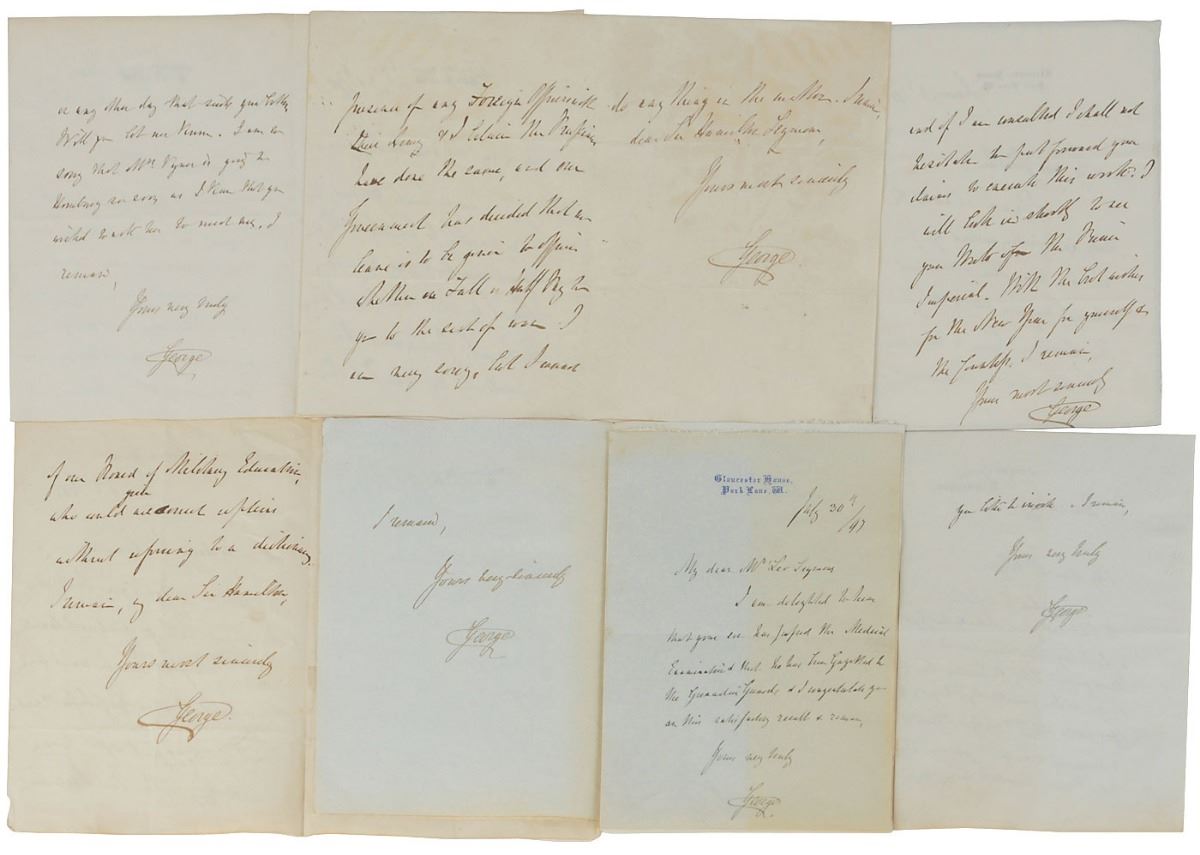 or any other day that suits you better
Will you let me know. I am so
sorry that Mrs Vyner is going to
Homburg so soon as I know that you
wished to ask her to meet me, I
remain,
Yours very truly
George
presence of any Foreign Officers with
their Army & I believe the Prussians
have done the same, and our
Government has decided that no
leave is to be given to officers
whether on Full or Half Pay to
go to the seat of war. I
am very sorry, but I cannot
do any thing in the matter. I remain,
dear Sir Hamilton Seymour,
Yours most sincerely
George.
and if I am consulted I shall not
hesitate to put forward your
claims to execute this work. I
will look in shortly to see
your of the Prince
Imperial. With the best wishes
for the New Year for yourself &
the Countess. I remain,
Yours most sincerely
George
of our Board of Military Education,
who could
without referring to a dictionary.
I remain, my dear Sir Hamilton,
Yours most sincerely
George.
I remain,
Yours very sincerely
George
Gloucester House,
Park Lane. W.
July 30th
/97
My dear Mr Leo Seymour
I am delighted to hear
that your son has passed the Medical
Examination & that he has been Gazetted to
the Grenadier Guards & I congratulate you
on this satisfactory result & remain,
Yours very truly
George
you like to invite. I remain,
Yours very truly
George